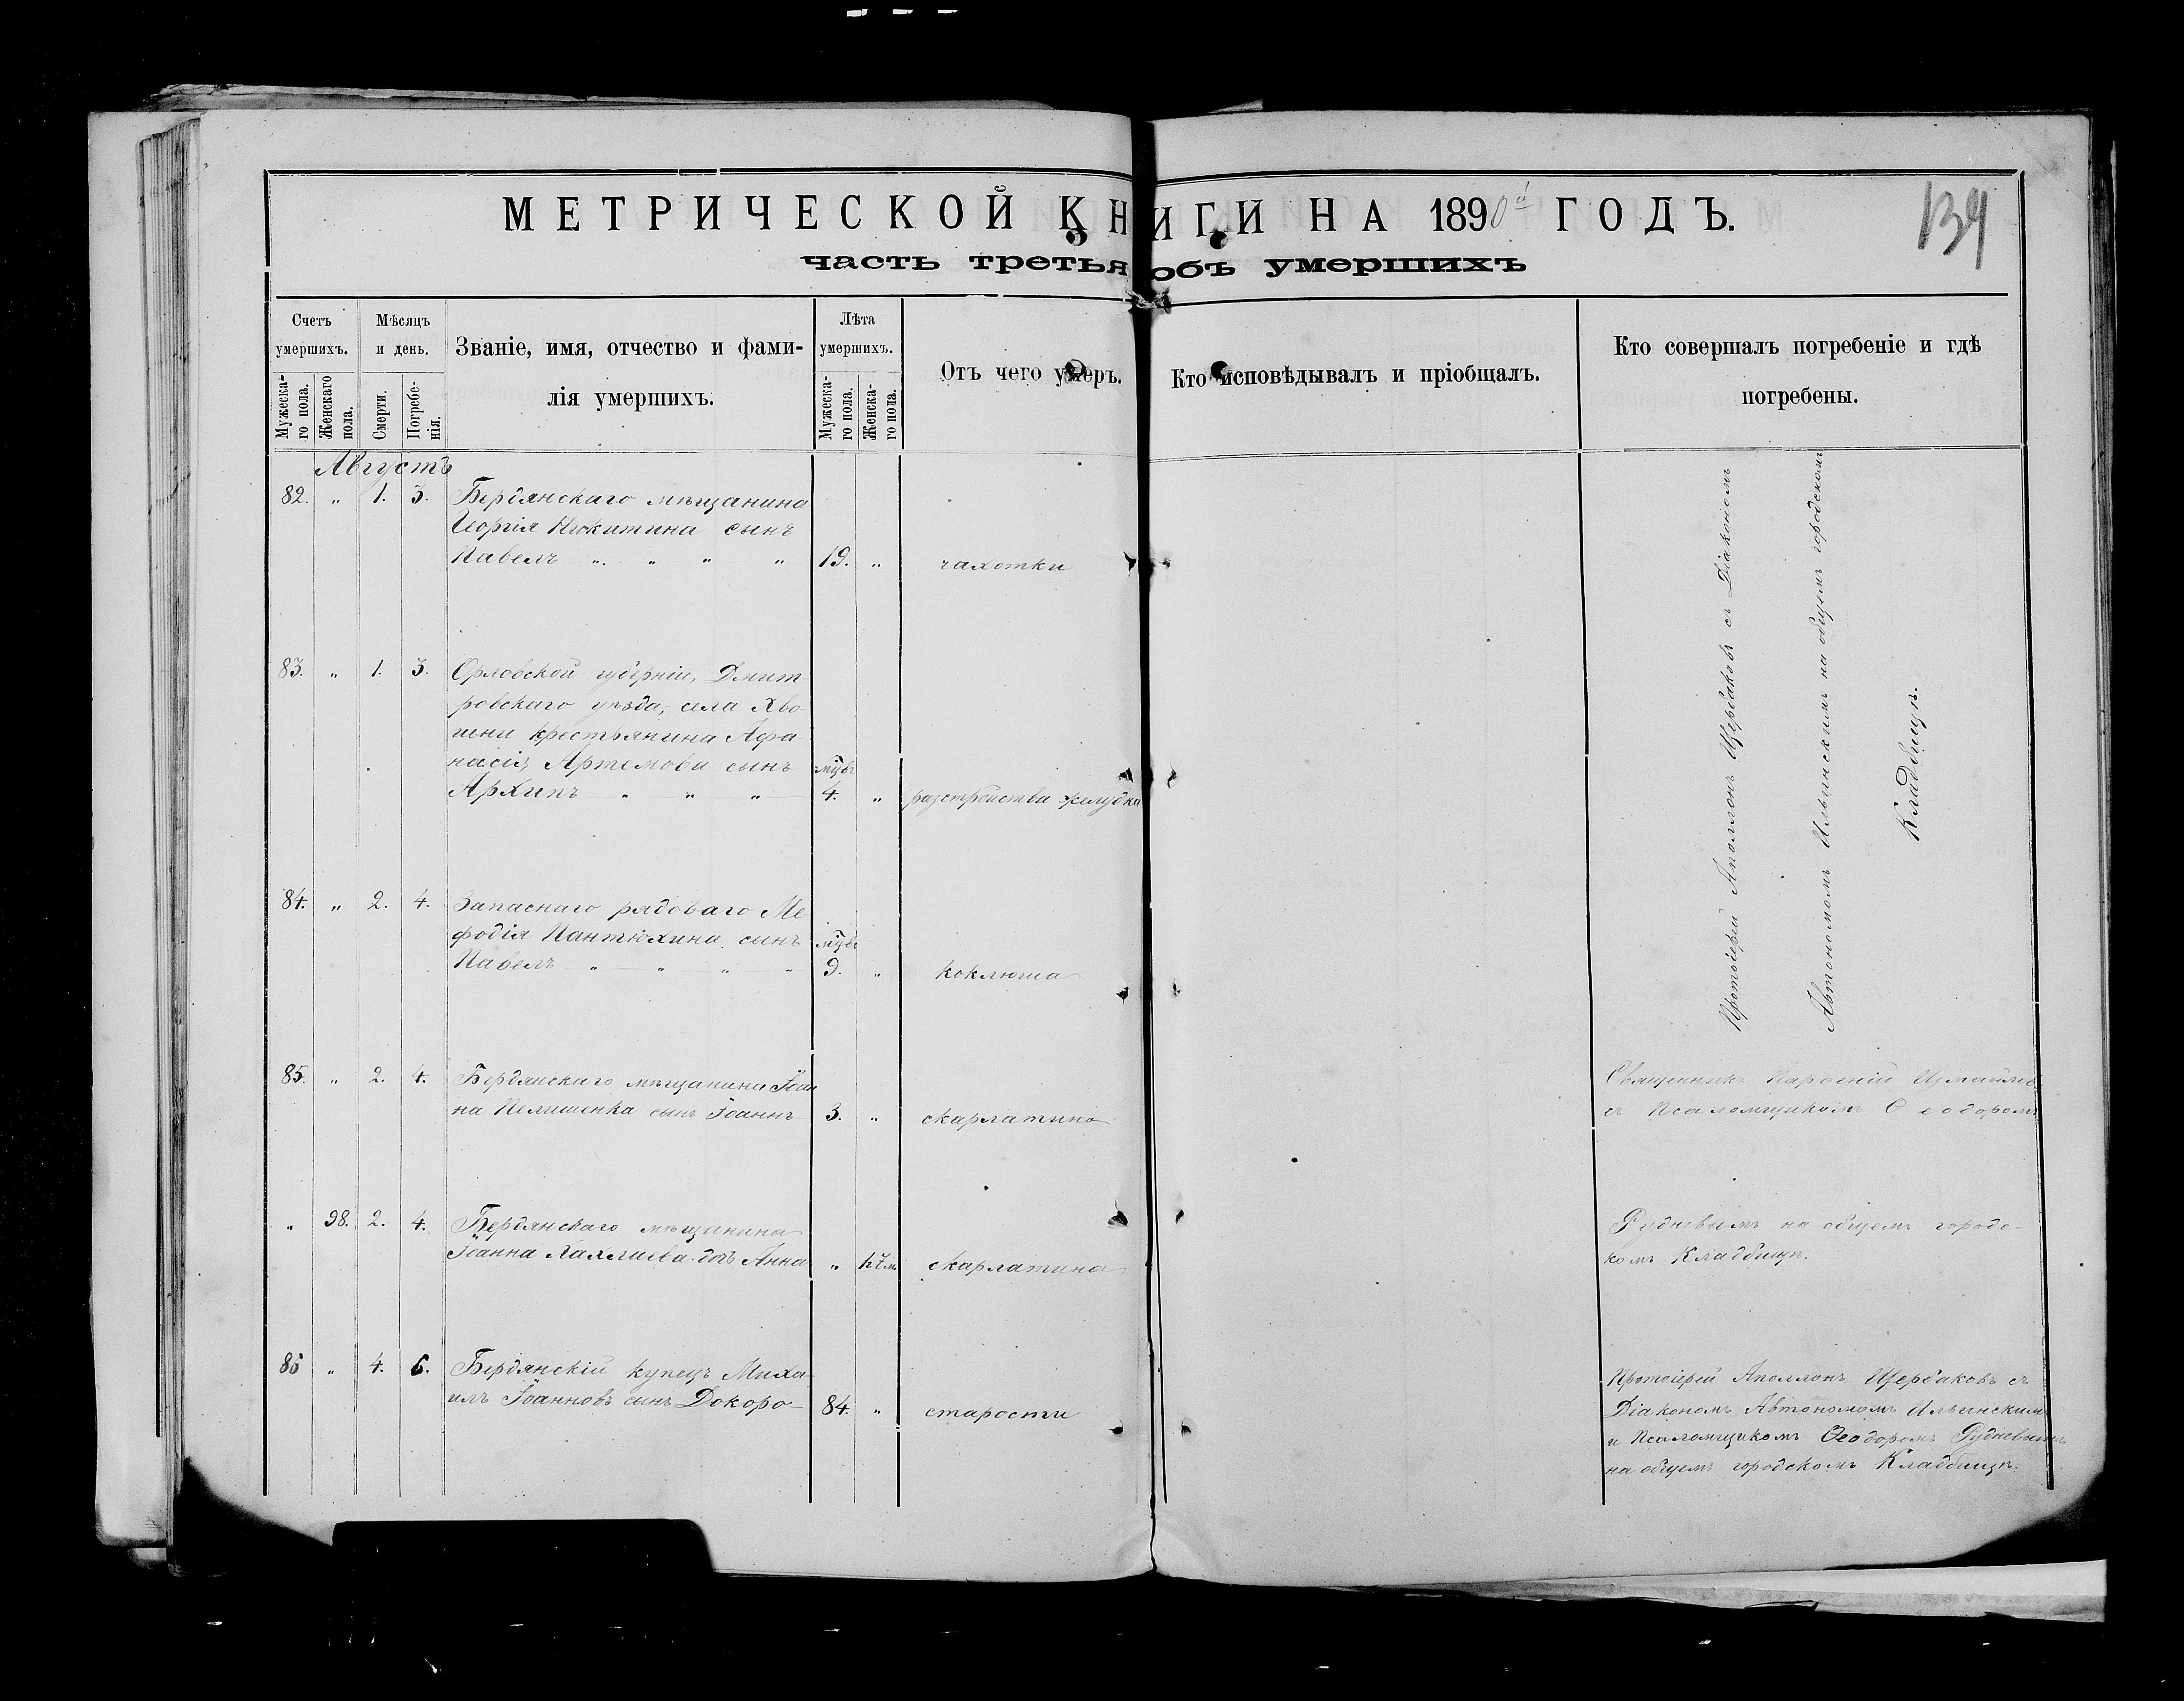 МЕТРИЧЕСКОЙ КНИГИ НА 1890й ГОДЪ.
139
часть третья объ умершихъ
Счетъ умершихъ.
Мужескаго пола.
Женскаго пола.
Мѣсяцъ и день.
Смерти.
Погребенія.
Званіе, имя, отчество и фами-
лія умершихъ.
Лѣта умершихъ.
Мужескаго пола.
Женскаго пола.
Отъ чего умеръ.
Кто исповѣдывалъ и пріобщалъ.
Кто совершалъ погребеніе и гдѣ
погребены.
Августъ
82. „ 1. 3. Бердянскаго мѣщанина
Георгія Никитина сынъ
Павелъ „ „ „ „ 19. „ чахотки
83. „ 1. 3. Орловской губерніи, Дмит
ровскаго уѣзда, села Хво
щни крестьянина Афа
насія Артемова сынъ мцвъ
Архипъ „ „ „ 4. „ разстройства желудка
84. „ 2. 4. Запаснаго рядоваго Ме
фодія Пантюхина сынъ мцвъ
Павелъ „ „ „ „ 9. „ коклюша
Протоіерей Аполлонъ Щербаковъ съ Діакономъ
Автономомъ Ильинскимъ на общемъ городскомъ
Кладбищѣ.
85. „ 2. 4. Бердянскаго мѣщанина Іоан
на Пелишенка сынъ Іоаннъ 3. „ скарлатина
Священникъ Парѳеній Измайловъ
съ Псаломщикомъ Ѳеодоромъ
„ 98. 2. 4. Бердянскаго мѣщанина
Іоанна Лахлиева дочь Анна „ скарлатина
Рудневымъ на общемъ городс-
комъ Кладбищѣ.
86 „ 4. 6. Бердянскій купецъ Миха
илъ Іоанновъ сынъ Докоро 84. „ старости
Протоіерей Аполлонъ Щербаковъ съ
Діакономъ Автономомъ Ильинскимъ
и Псаломщикомъ Ѳеодоромъ Рудневымъ
на общемъ городскомъ Кладбищѣ.